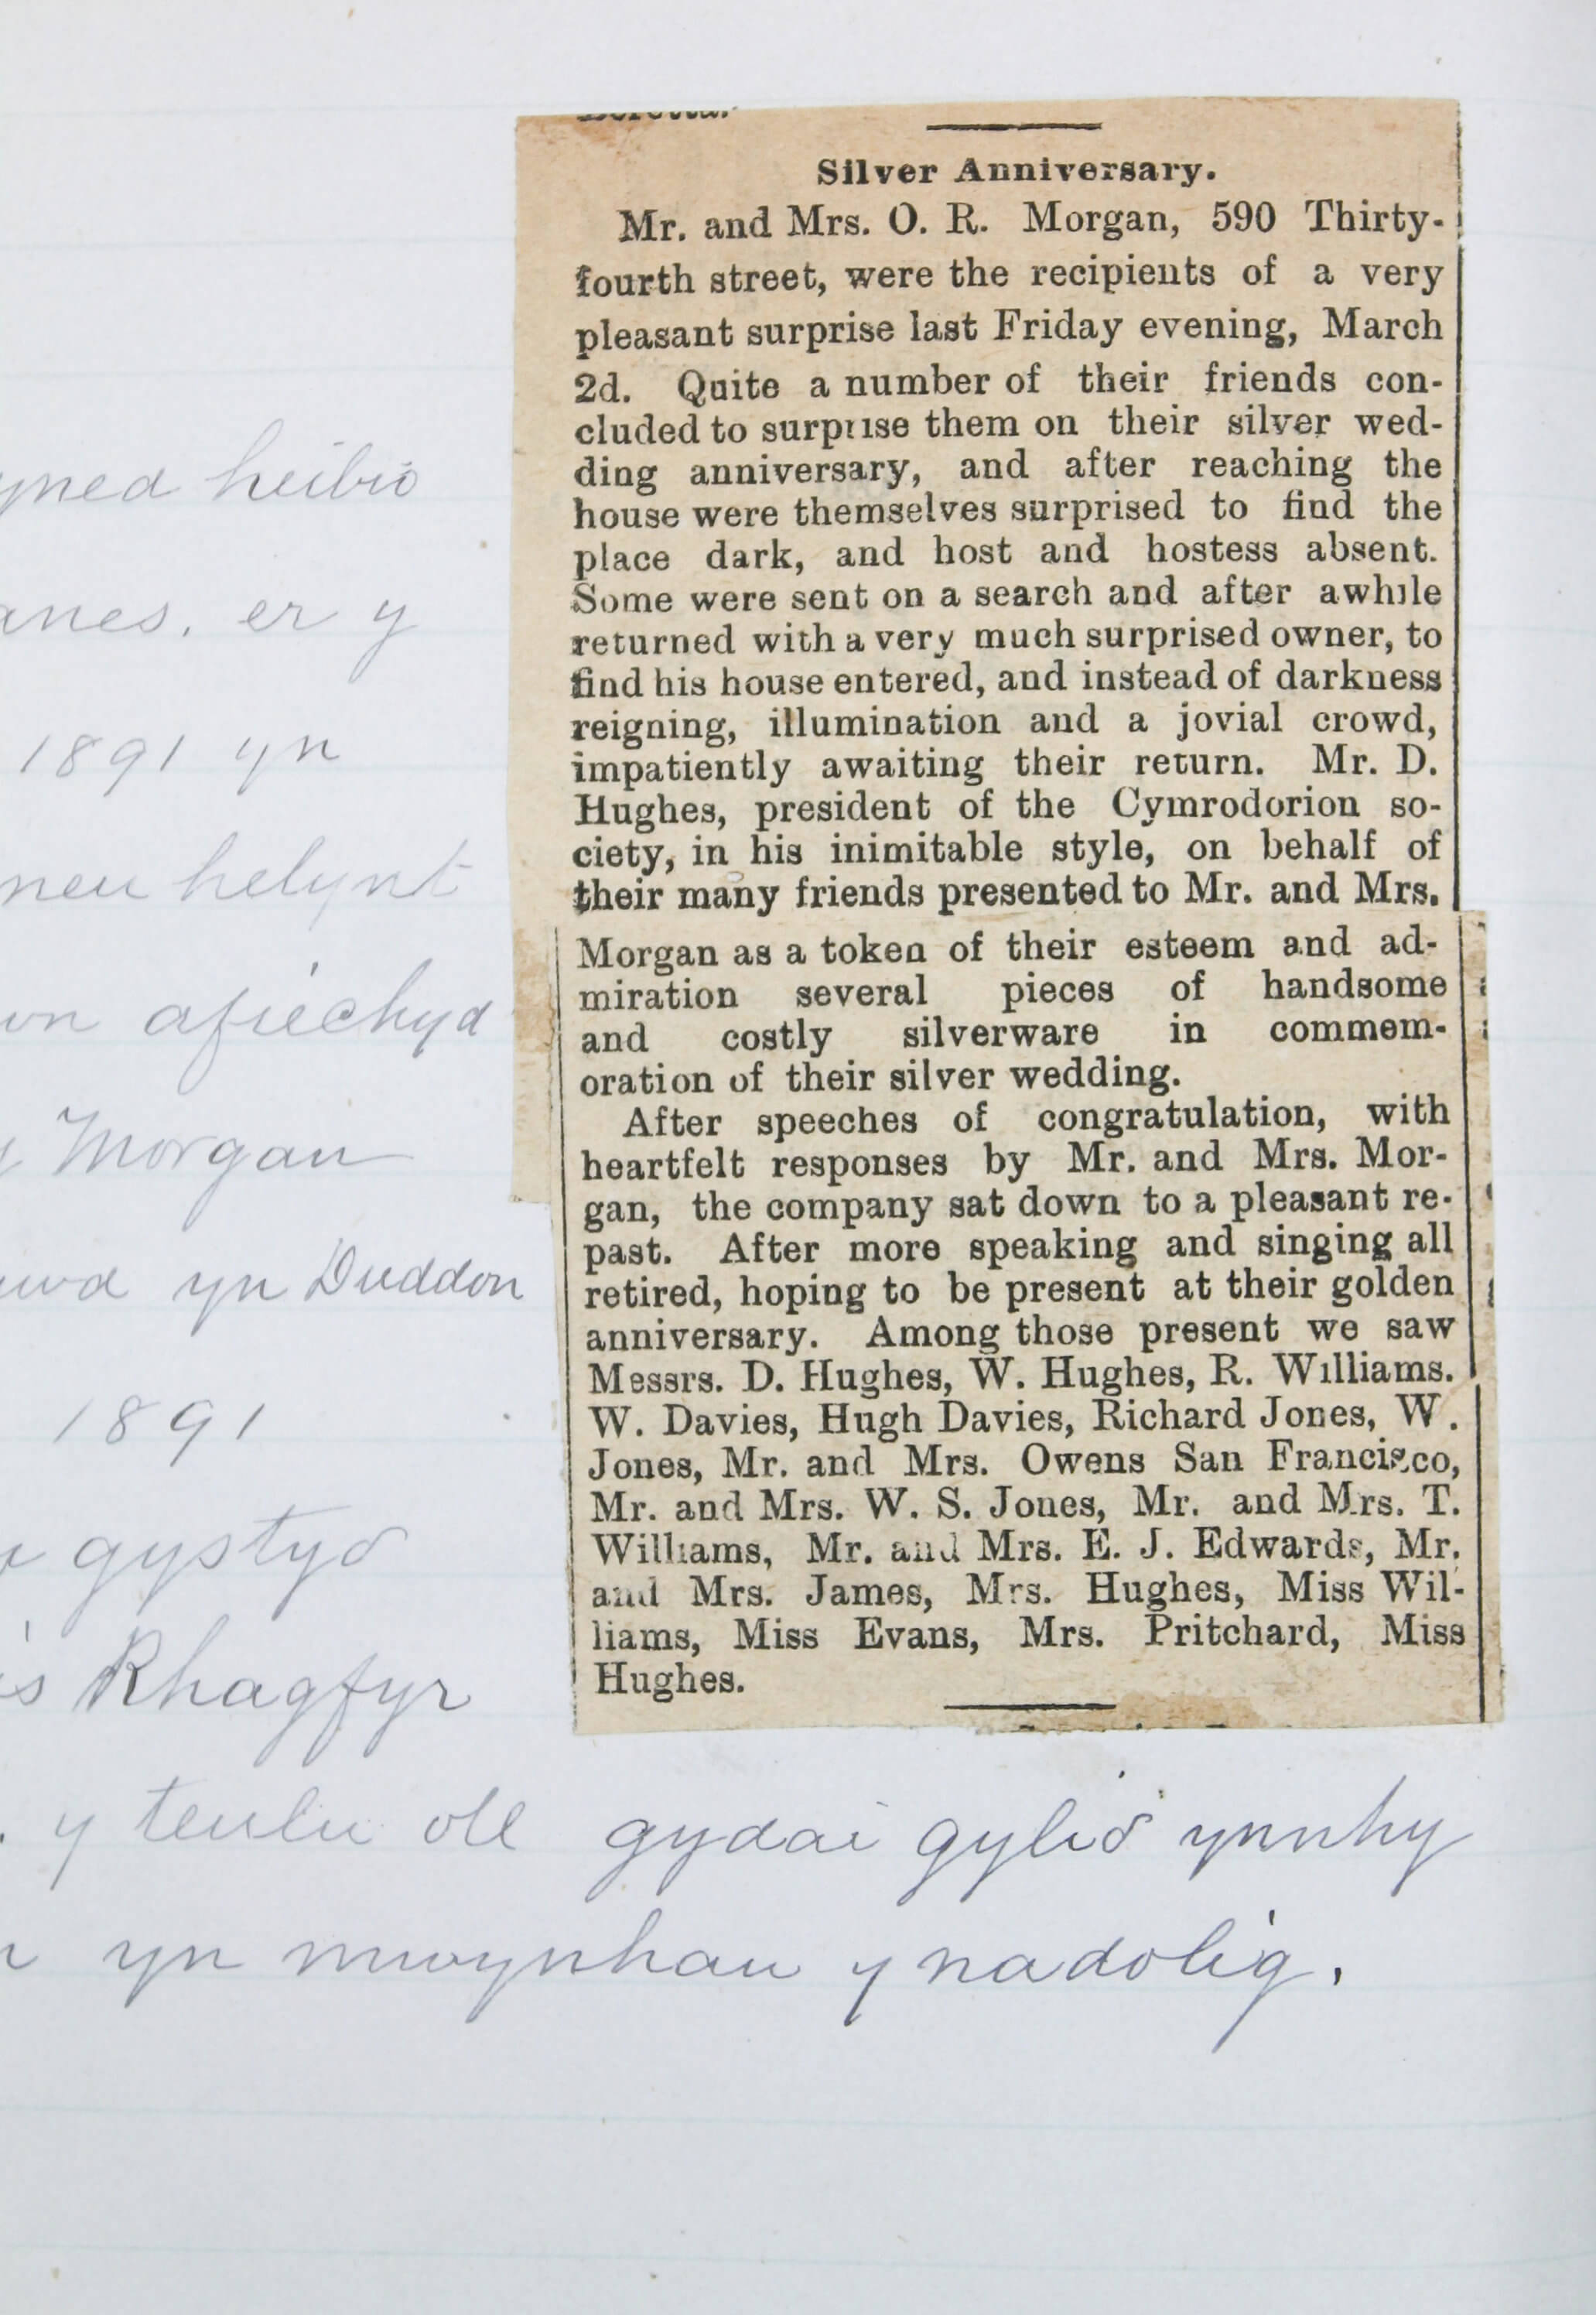 Silver Anniversary.
Mr. and Mrs. O. R. Morgan, 590 Thirty-
fourth street, were the recipients of a very
pleasant surprise last Friday evening, March
2d. Quite a number of their friends con-
cluded to surprise them on their silver wed-
ding anniversary, and after reaching the
house were themselves surprised to find the
place dark, and host and hostess absent.
Some were sent on a search and after awhile
returned with a very much surprised owner, to
find his house entered, and instead of darkness
reigning, illumination and a jovial crowd,
impatiently awaiting their return. Mr. D.
Hughes, president of the Cymrodorion so-
ciety, in his inimitable style, on behalf of
their many friends presented to Mr. and Mrs.
Morgan as a token of their esteem and ad-
miration several pieces of handsome
and costly silverware in commem-
oration of their silver wedding.
After speeches of congratulation, with
heartfelt responses by Mr. and Mrs. Mor-
gan, the company sat down to a pleasant re-
past. After more speaking and singing all
retired, hoping to be present at their golden
anniversary. Among those present we saw
Messrs. D. Hughes, W. Hughes, R. Williams.
W. Davies, Hugh Davies, Richard Jones, W.
Jones, Mr. and Mrs. Owens San Francisco,
Mr. and Mrs. W. S. Jones, Mr. and Mrs. T.
Williams, Mr. and Mrs. E. J. Edwards, Mr.
and Mrs. James, Mrs. Hughes, Miss Wil-
liams, Miss Evans, Mrs. Pritchard, Miss
Hughes.
heibio
er y
1891 yn
neu helynt
afiechyd
Morgan
yn Duddon
1891
gystyd
Rhagfyr
y teulu oll gydai gylid ynnhy
yn mwynhau y nadolig.